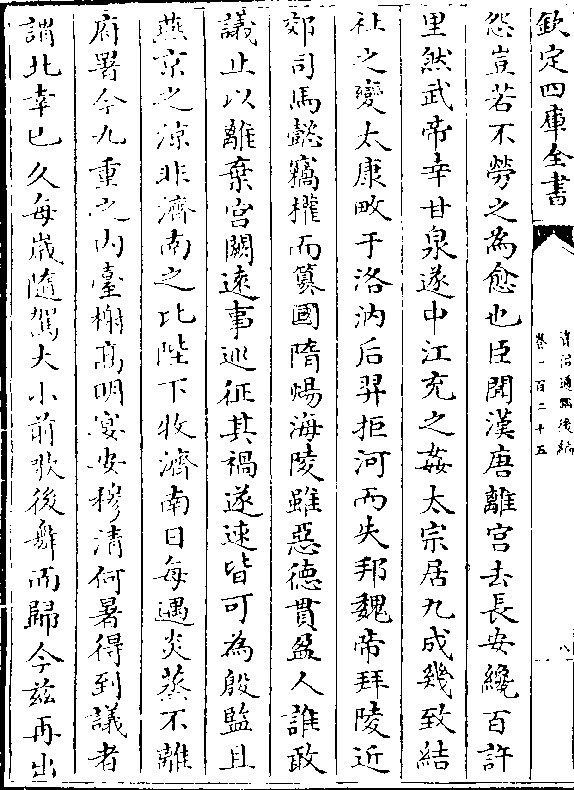 欽定四庫全書
資治通鑑後編
卷一百二十五
八
怨豈若不勞之為愈也臣聞漢唐離宮去長安纔百許
里然武帝幸甘泉遂中江充之姦太宗居九成幾致結
社之變太康畋于洛汭后羿拒河而失邦魏帝拜陵近
郊司馬懿竊權而簒國隋煬海陵雖惡德貫盈人誰敢
議止以離棄宮闕遠事巡征其禍遂速皆可為殷監且
燕京之涼非濟南之比陛下牧濟南日每遇炎蒸不離
府署今九重之内臺榭髙明宴安穆清何暑得到議者
謂北幸已久每嵗隨駕大小前歌後舞而歸今兹再出